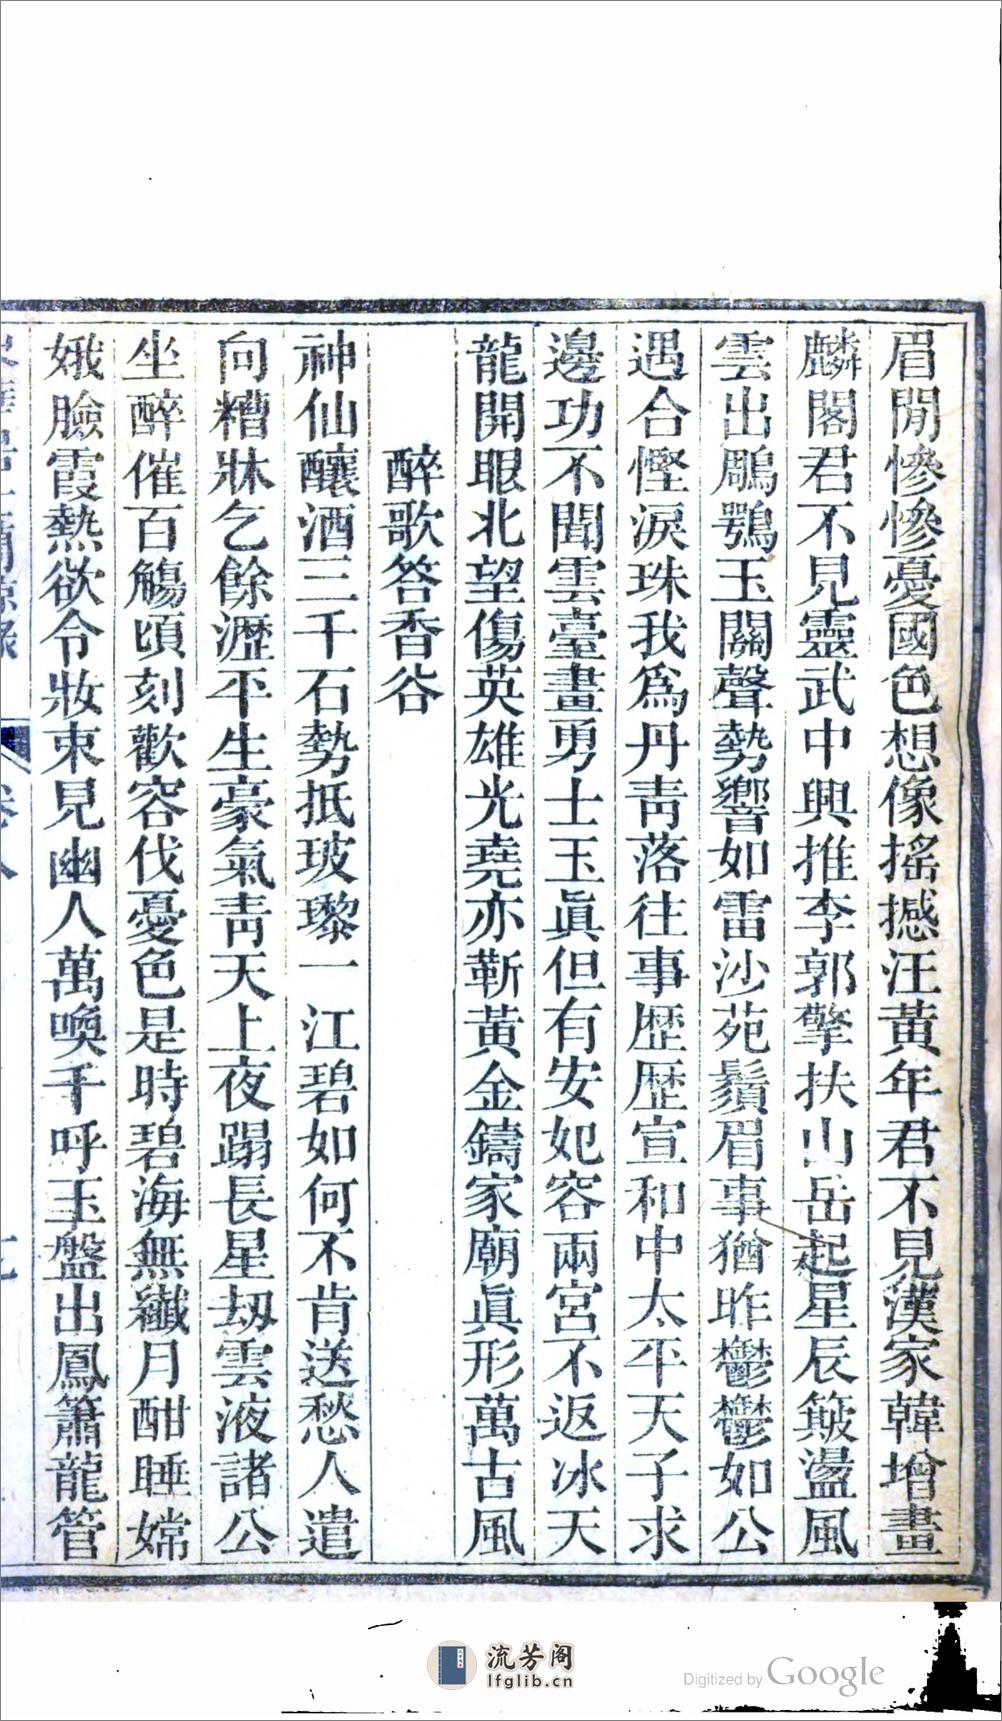 眉閒慘慘憂國色想像搖撼汪黃年君不見漢家韓增畫
麟閣君不見靈武中興推李郭擎扶山岳起星辰簸盪風
雲出鵰鶚玉關聲勢響如雷沙苑鬚眉事猶昨鬱鬱如公
遇合慳淚珠我爲丹靑落往事歷歷宣和中太平天子求
邊功不聞雲臺畫勇士玉眞但有安妃容兩宮不返冰天
龍開眼北望傷英雄光堯亦靳黃金鑄家廟眞形萬古風
醉歌答香谷
神仙釀酒三千石勢抵玻瓈一江碧如何不肯送愁人遣
向糟牀乞餘瀝平生豪氣靑天上夜蹋長星刼雲液諸公
坐醉催百觴頃刻歡容伐憂色是時碧海無纖月酣睡嫦
娥臉霞熱欲令妝束見幽人萬喚千呼玉盤出鳳簫龍管
卷八
流芳阁
lfglib.cn
Digitized by Google